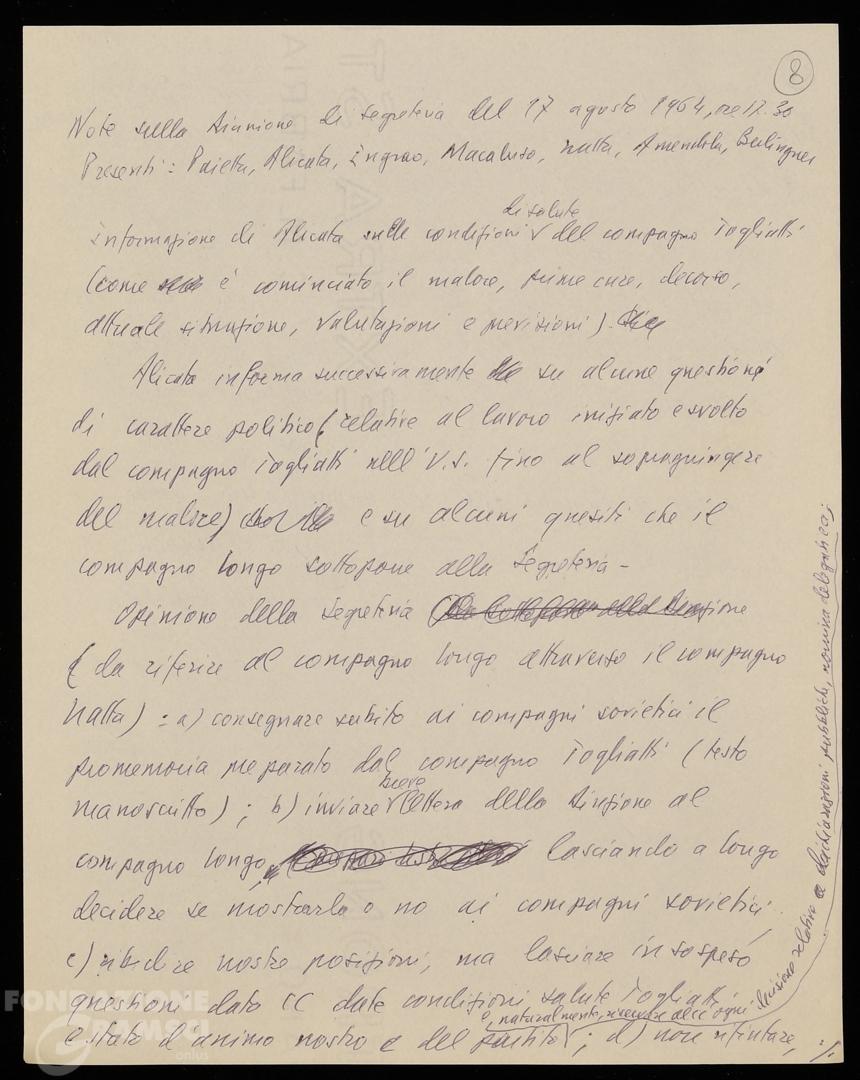 8
Note sulla riunione di segreteria del 17 agosto 1964, ore 17.30
Presenti: Paietta, Alicata, Ingrao, Macaluso, Natta, Amendola, Berlinguer
Informazione di Alicata sulle condizioni di salute del compagno Togliatti
(come è cominciato il malore, prime cure, decorso,
attuale situazione, valutazioni e previsioni).
Alicata informa successivamente su alcune questioni
di carattere politico (relative al lavoro iniziato e svolto
dal compagno Togliatti nell'U.S. fino al sopraggiungere
del malore) e su alcuni quesiti che il
compagno Longo sottopone alla Segreteria -
Opinione della Segreteria
(da riferire al compagno Longo attraverso il compagno
Natta): a) consegnare subito ai compagni sovietici il
promemoria preparato dal compagno Togliatti (testo
manoscritto); b) inviare breve lettera della Direzione al
compagno Longo, lasciando a Longo
decidere se mostrarla o no ai compagni sovietici
c) ribadire nostre posizioni, ma lasciare in sospeso
questioni data CC date condizioni salute Togliatti
e stato d'animo nostro e del partito, naturalmente, riservare al CC ogni decisione relativa a dichiarazioni pubbliche, nomina delegazione; d) non rifiutare,
./.
FONDAZIONE
GRAMSCI
onlus